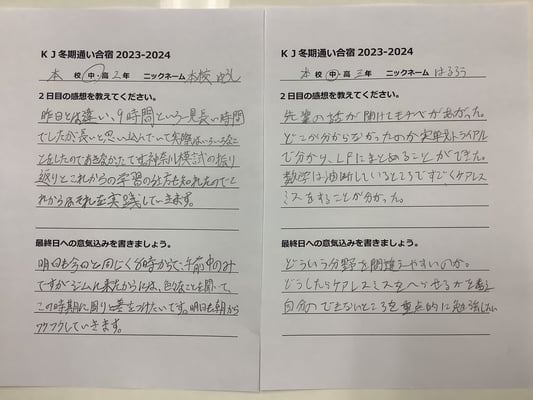 KJ冬期通い合宿 2023-2024
本 校 中・高 2年 ニックネーム 本校
2日目の感想を教えてください。
昨日とは違い、9時間という長い時間
でしたが、長いと思い込んでいて実際はいろいろなこ
とをしたのであきなかったです。神奈川模試の振り
返りとこれからの学習の仕方も知れたのでこ
れからはそれを実践していきます。
最終日への意気込みを書きましょう。
明日も今日と同じく8時からで、午前中のみ
ですがジムに来たからには、色々なことを聞いて、
この時期に周りと差をつけたいです。明日も朝から
ワクワクしていきます。
KJ冬期通い合宿 2023-2024
本 校 中・高 三年 ニックネーム はるろう
2日目の感想を教えてください。
先輩の話が聞けてモチベがあがった。
どこが分からなかったのか実単見トライアル
で分かり、LPにまとめることができた。
数学は油断しているところですごくケアレス
ミスをすることが分かった。
最終日への意気込みを書きましょう。
どういう分野を間違えやすいのか。
どうしたらケアレスミスをへらせるかを考え
自分のできないところを重点的に勉強したい